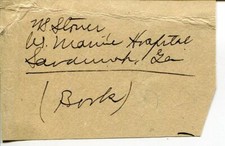 W Stoner
U. S. Marine Hospital
Savannah, Ga
(Book)